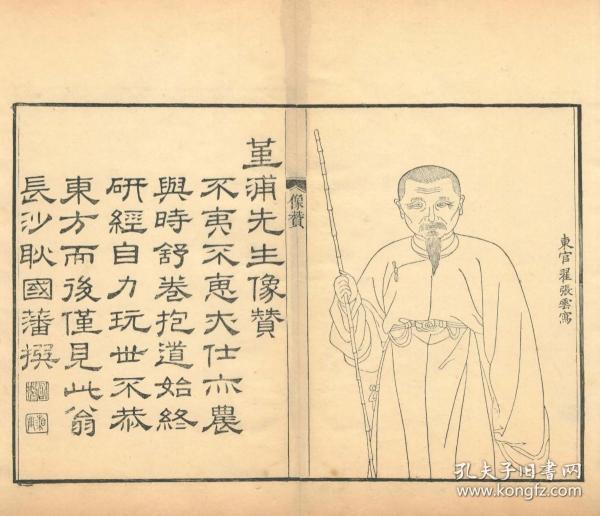 東官翟張雲寫
像贊
堇浦先生像贊
不夷不惠大仕亦農
與時舒卷抱道始終
研經自力玩世不恭
東方而後僅見此翁
長沙耿國藩撰
孔夫子旧书网
www.kongfz.com